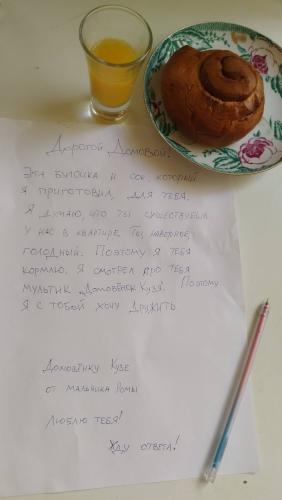 Дорогой Домовой.
Эта булочка и сок, который
я приготовил для тебя.
Я думаю, что ты существуешь
у нас в квартире. Ты наверное,
голодный. Поэтому я тебя
кормлю. Я смотрел про тебя
мультик „Домовёнок Кузя". Поэтому
я с тобой хочу дружить
Домовёнку Кузе
от мальчика Ромы
Люблю тебя!
Жду ответа!